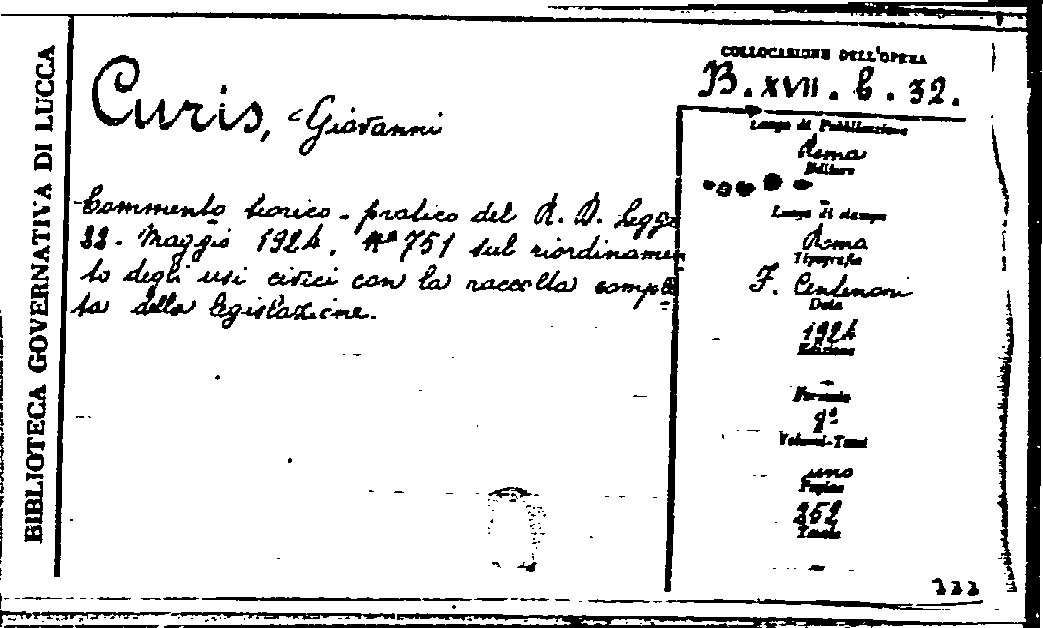 BIBLIOTECA GOVERNATIVA DI LUCCA
Curis, Giovanni
Commento teorico-pratico del R. D. Legge
22. Maggio 1924. N° 751 sul riordinamen
to degli usi civici con la raccolta comple
ta della legislazione.
COLLOCAZIONE DELL'OPERA
B. XVII. b. 32.
Luogo di Pubblicazione
Roma
Editore
Luogo di stampa
Roma
Tipografia
F. Centenari
Data
1924
Edizione
Formato
8°
Volumi-Tomi
uno
Pagine
352
Tavole